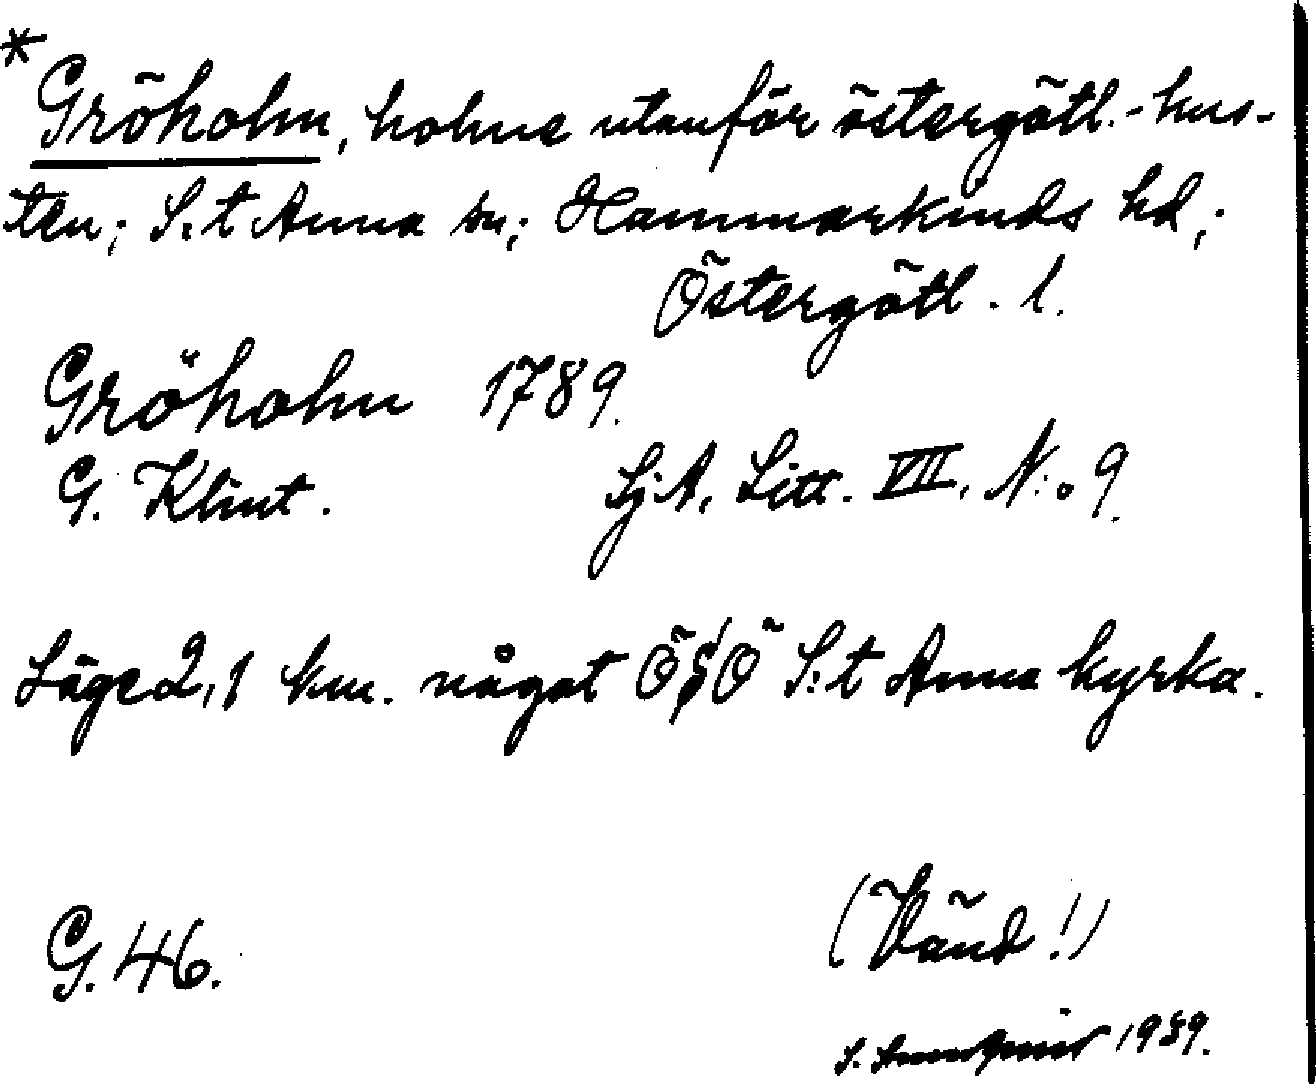 * Gröholm, holme utanför östergötl.-kus-
ten; S:t Anna sn; Hammarkinds hd;
Östergötl. l.
Gröholm 1789.
G. Klint. Sj.A. Litt. VII. N:o 9.
Läge 2,1 km. något ÖSÖ S:t Anna kyrka.
(Vänd!)
G. 46.
S. 1939.